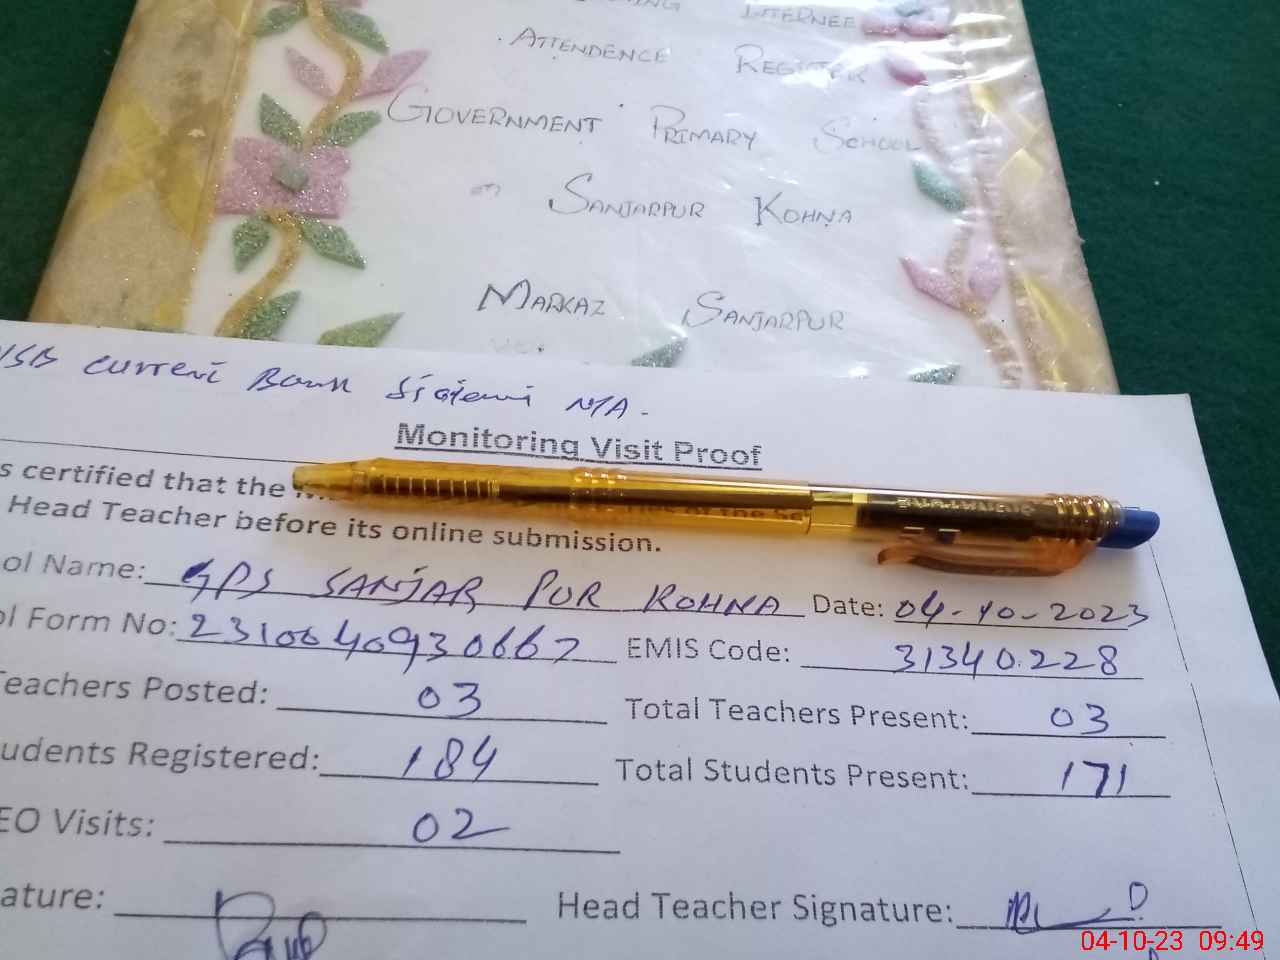 INTERNEE
ATTENDENCE REGISTER
GOVERNMENT PRIMARY SCHOOL
SANJARPUR KOHNA
MARKAZ SANJARPUR
NSB current Bank N/A.
Monitoring Visit Proof
s certified that the
Head Teacher before its online submission.
ol Name: GPS SANJAR PUR KOHNA Date: 04-10-2023
ol Form No: EMIS Code: 31340228
Teachers Posted: 03 Total Teachers Present: 03
udents Registered: 184 Total Students Present: 171
EO Visits: 02
ature: Head Teacher Signature:
04-10-23 09:49